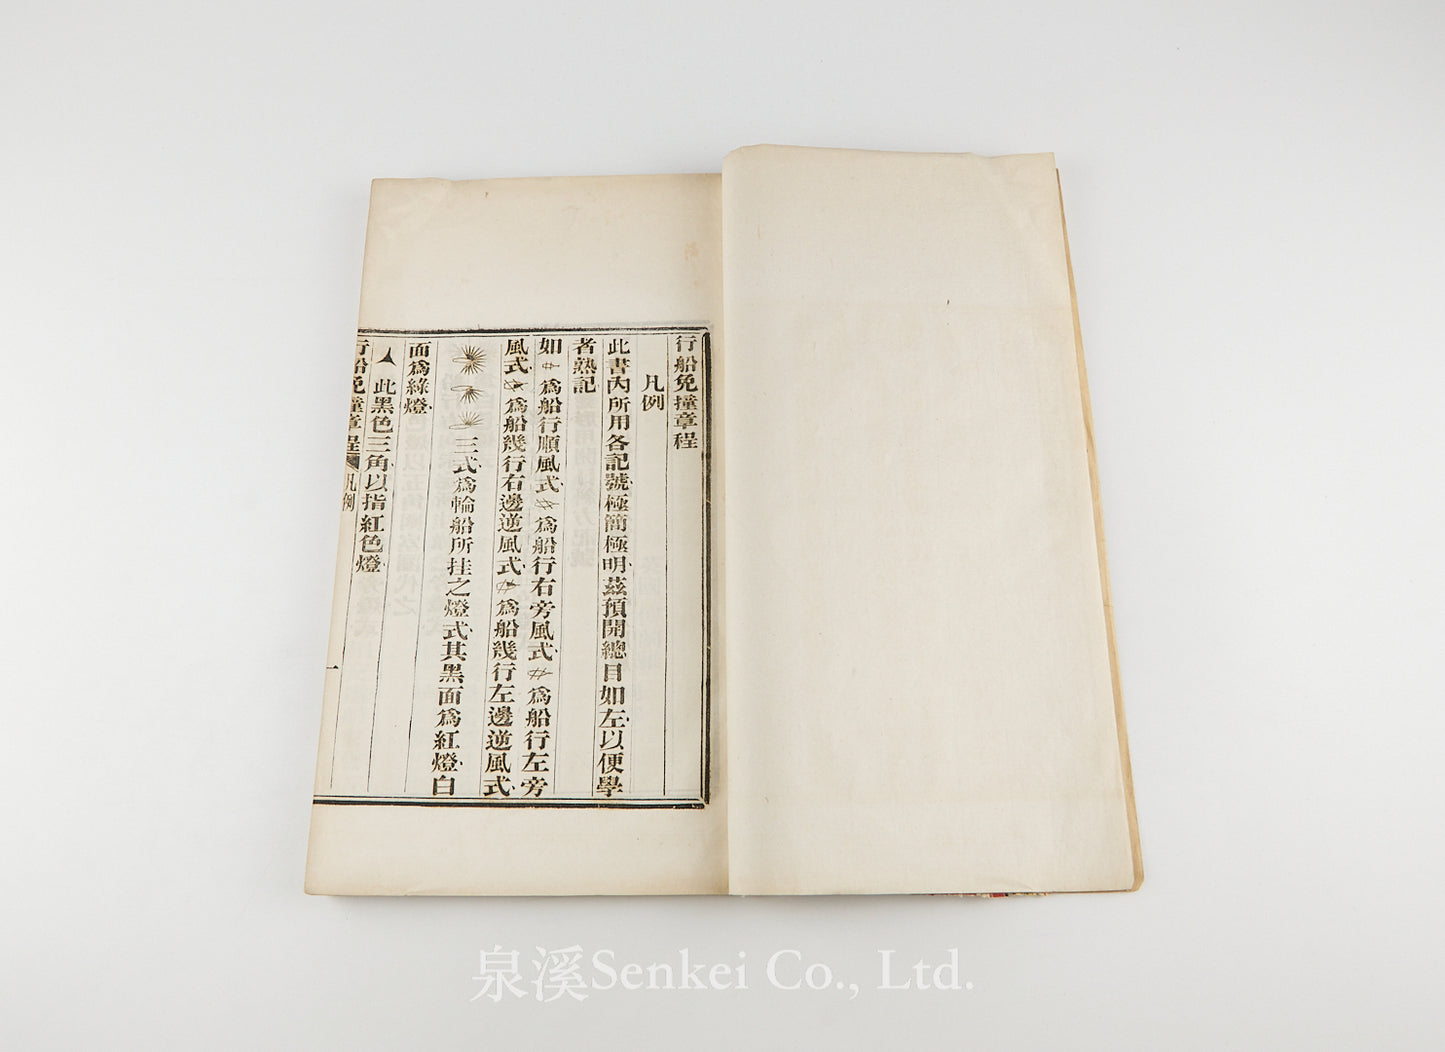 行船免撞章程
凡例
此書內所用各記號極簡極明茲預開總目如左以便學
者熟記
如 爲船行順風式 爲船行右旁風式 爲船行左旁
風式 爲船幾行右邊逆風式 爲船幾行左邊逆風式
三式爲輪船所挂之燈式其黑面爲紅燈白
面爲綠燈
此黑色三角以指紅色燈
行船免撞章程 凡例
一
泉溪Senkei Co., Ltd.